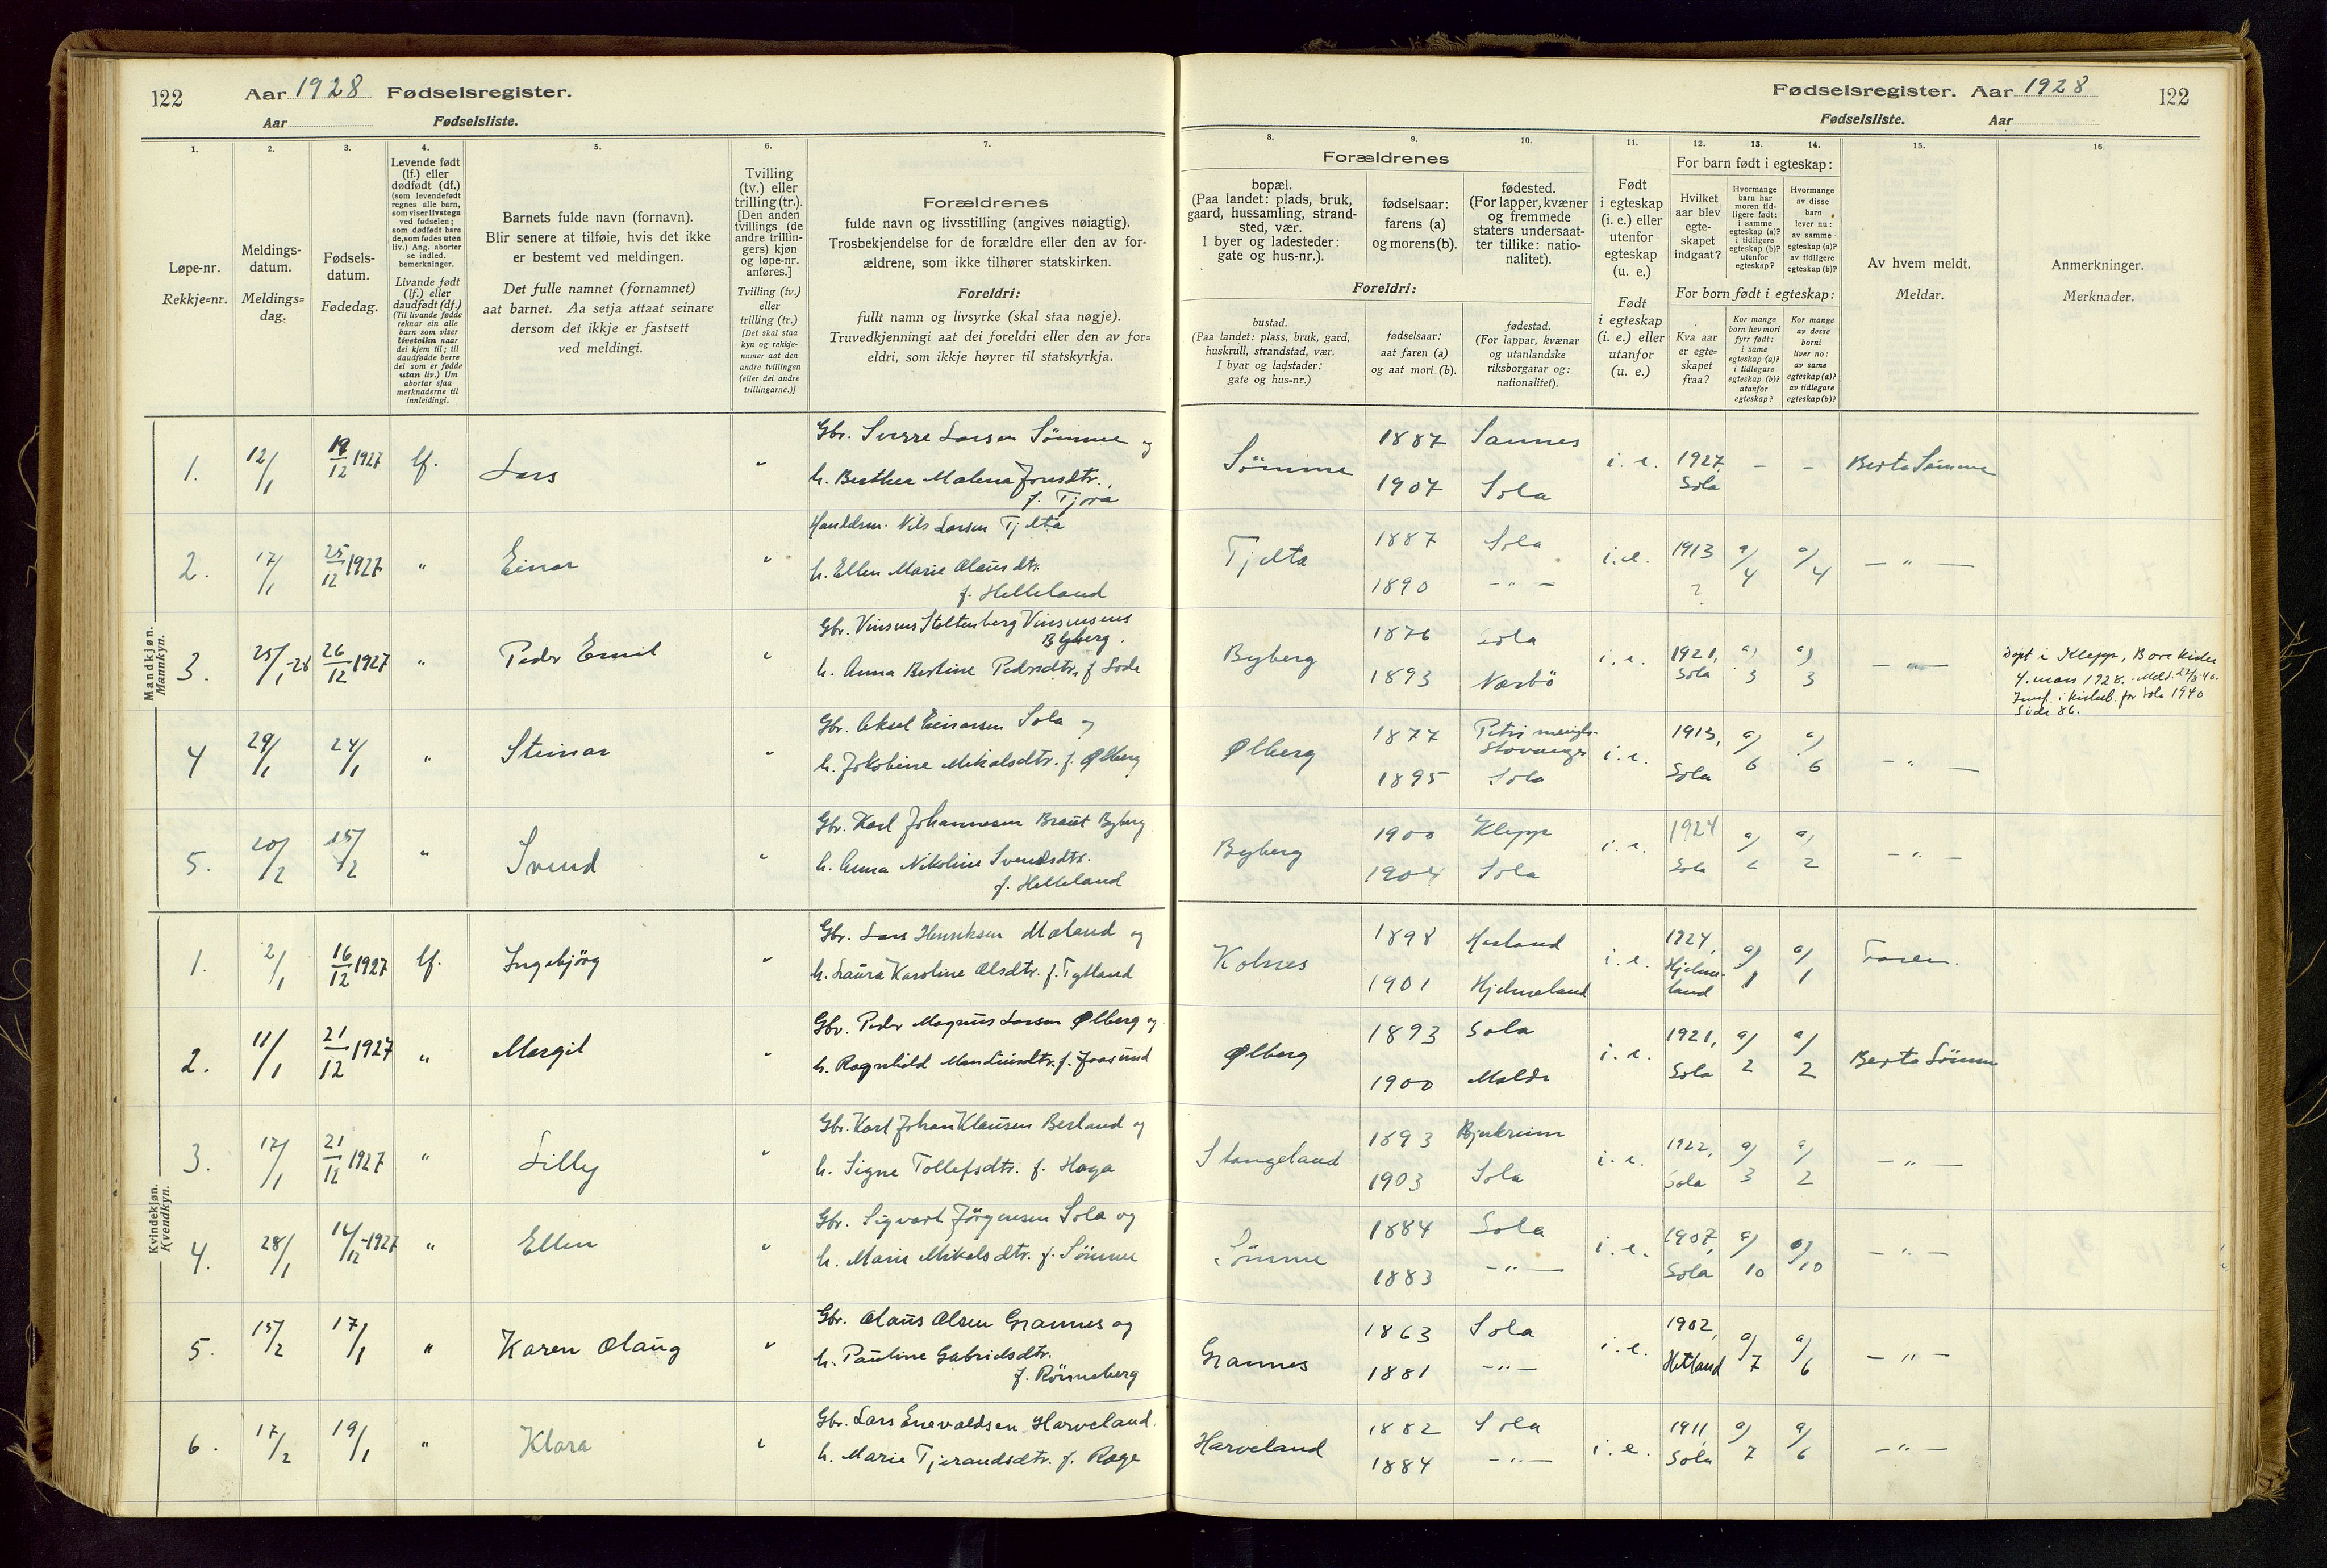 122
Aar 1928 Fødselsregister.
Aar Fødselsliste.
1.
2.
3.
4.
5.
6.
7.
Løpe-nr.
Rekkje=nr.
Meldings-
datum.
Meldings=
dag.
Fødsels-
datum.
Fødedag.
Levende født
(lf.) eller
dødfødt (df.)
(som levendefødt
regnes alle barn,
som viser livstegn
ved fødselen;
som dødfødt bare
de, som fødes uten
liv.) Ang. aborter
se indled.
bemerkninger.
Livande født
(lf.) eller
daudfødt (df.)
(Til livande fødde
reknar ein alle
barn som viser
livsteikn naar
dei kjem til; til
daudfødde berre
dei som er fødde
utan liv.) Um
abortar sjaa
merknaderne til
innleidingi.
Barnets fulde navn (fornavn).
Blir senere at tilføie, hvis det ikke
er bestemt ved meldingen.
Det fulle namnet (fornamnet)
aat barnet. Aa setja attaat seinare
dersom det ikkje er fastsett
ved meldingi.
Tvilling
(tv.) eller
trilling (tr.).
[Den anden
tvillings (de
andre trillin-
gers) kjøn
og løpe-nr.
anføres.]
Tvilling (tv.)
eller
trilling (tr.)
[Det skal staa
kyn og rekkje-
numer aat den
andre tvillingen
(eller dei andre
trillingarne.)]
Forældrenes
fulde navn og livsstilling (angives nøiagtig).
Trosbekjendelse for de forældre eller den av for-
ældrene, som ikke tilhører statskirken.
Foreldri:
fullt namn og livsyrke (skal staa nøgje).
Truvedkjenningi aat dei foreldri eller den av for=
eldri, som ikkje høyrer til statskyrkja.
Mandkjøn.
Mannkyn.
1. 12/1 19/12 1927 lf. Lars " Gbr. Sverre Larsen Sömme og
h. Berthea Malena Jonsdtr.
f. Tjora
2. 17/1 25/12 1927 " Einar " Handelsm. Nils Larsen Tjelta
h. Ellen Marie Olausdtr.
f. Helleland
3. 25/1-28 26/12 1927 " Peder Emil " Gbr. Vinsens Stoltenberg Vinsensens
Byberg.
h. Anna Bertine Pedersdtr. f. Lode
4 29/1 24/1 " Steinar " Gbr. Aksel Einarsen Sola og
h. Jakobine Mikalsdtr. f. Ølberg
5. 20/2 15/2 " Svend " Gbr. Karl Johannesen Braut Byberg
h. Anna Nikoline Svendsdtr.
f. Helleland
Kvindekjøn.
Kvendkyn.
1. 2/1 16/12 1927 lf. Ingebjörg " Gbr. Lars Henriksen Maland og
h. Laura Karoline Olsdtr. f. Tytland
2. 11/1 21/12 1927 " Margit " Gbr. Peder Magnus Larsen Ølberg og
h. Ragnhild f. Joasund
3. 17/1 21/12 1927 " Lilly " Gbr. Karl Johan Klausen Berland og
h. Signe Tollefsdtr. f. Haga
4. 28/1 16/12-1927 " Ellen " Gbr. Sigvart Jörgensen Sola og
h. Marie Mikalsdtr. f. Sömme
5. 15/2 17/1 " Karen Olaug " Gbr. Olaus Olsen Grannes og
h. Pauline Gabrielsdtr.
f. Rönneberg
6. 17/2 19/1 " Klara " Gbr. Lars Enevaldsen Harveland.
h. Marie Tjerandsdtr. f. Rege
Fødselsregister. Aar 1928 122
Fødselsliste. Aar
8.
9.
10.
11.
12.
13.
14.
15.
16.
Forældrenes
bopæl.
(Paa landet: plads, bruk,
gaard, hussamling, strand-
sted, vær.
I byer og ladesteder:
gate og hus-nr.).
fødselsaar:
farens (a)
og morens (b).
fødested.
(For lapper, kvæner
og fremmede
staters undersaat-
ter tillike: natio-
nalitet).
Foreldri:
bustad.
(Paa landet: plass, bruk, gard,
huskrull, strandstad, vær.
I byar og ladstader:
gate og hus=nr.)
fødselsaar:
aat faren (a)
og aat mori (b).
fødestad.
(For lappar, kvænar
og utanlandske
riksborgarar og:
nationalitet).
Født
i egteskap
(i. e.) eller
utenfor
egteskap
(u. e.)
Født
i egteskap
(i. e.) eller
utanfor
(u. e.)
For barn født i egteskap:
Hvilket
aar blev
egte-
skapet
indgaat?
Hvormange
barn har
moren tid-
ligere født:
i samme
egteskap (a)?
i tidligere
egteskap (b)?
utenfor
egteskap?
Hvormange
av disse
barn
lever nu:
av samme
egteskap (a)?
av tidligere
egteskap (b)?
For born født i egteskap:
Kva aar
er egte=
skapet
fraa?
Kor mange
born hev mori
fyrr født:
i same
egteskap (a)?
i tidlegare
egteskap (b)?
utanfor
egteskap?
Kor mange
av desse
borni
liver no:
av same
egteskap (a)?
av tidlegare
egteskap (b)?
Av hvem meldt.
Meldar.
Anmerkninger.
Merknader.
Sömme 1887 Sannes i. e. 1927 - - Berta Sömme
1907 Sola Sola
Tjelta 1887 Sola i. e. 1913 a/4 a/4 - " -
1890 - " - ?
Byberg 1876 Sola i. e. 1921, a) 3 a) 3 - " -
1893 Nærbö Sola
Döpt i Klepp, Bore kirke
4. mars 1928. - Meld. 27/5 40.
Innf. i kirkeb. for Sola 1940
Side 86.
Ølberg 1877 Petri menigh. Stavanger i. e. 1913, a) 6 a) 6 - " -
1895 Sola Sola
Byberg 1900 Klepp i. e. 1924 a) 2 a) 2 - " -
1904 Sola Sola
Kolnes 1898 i. e. 1924, a) 1 a) 1 Faren.
1901 Hjelmeland Hjelme-
land
Ølberg 1893 Sola i. e. 1921, a) 2 a) 2 Berta Sömme
1900 Molde Sola
Stangeland 1893 Bjerkreim i. e. 1922, a) 3 a) 2 - " -
1903 Sola Sola
Sömme 1884 Sola i. e. 1907, a) 10 a) 10 - " -
1883 - " - Sola
Grannes 1863 Sola i. e. 1902, a) 7 a) 6 - " -
1881 - " - Hetland
Harveland 1882 Sola i. e. 1911, a) 7 a) 6 - " -
1884 - " - Sola